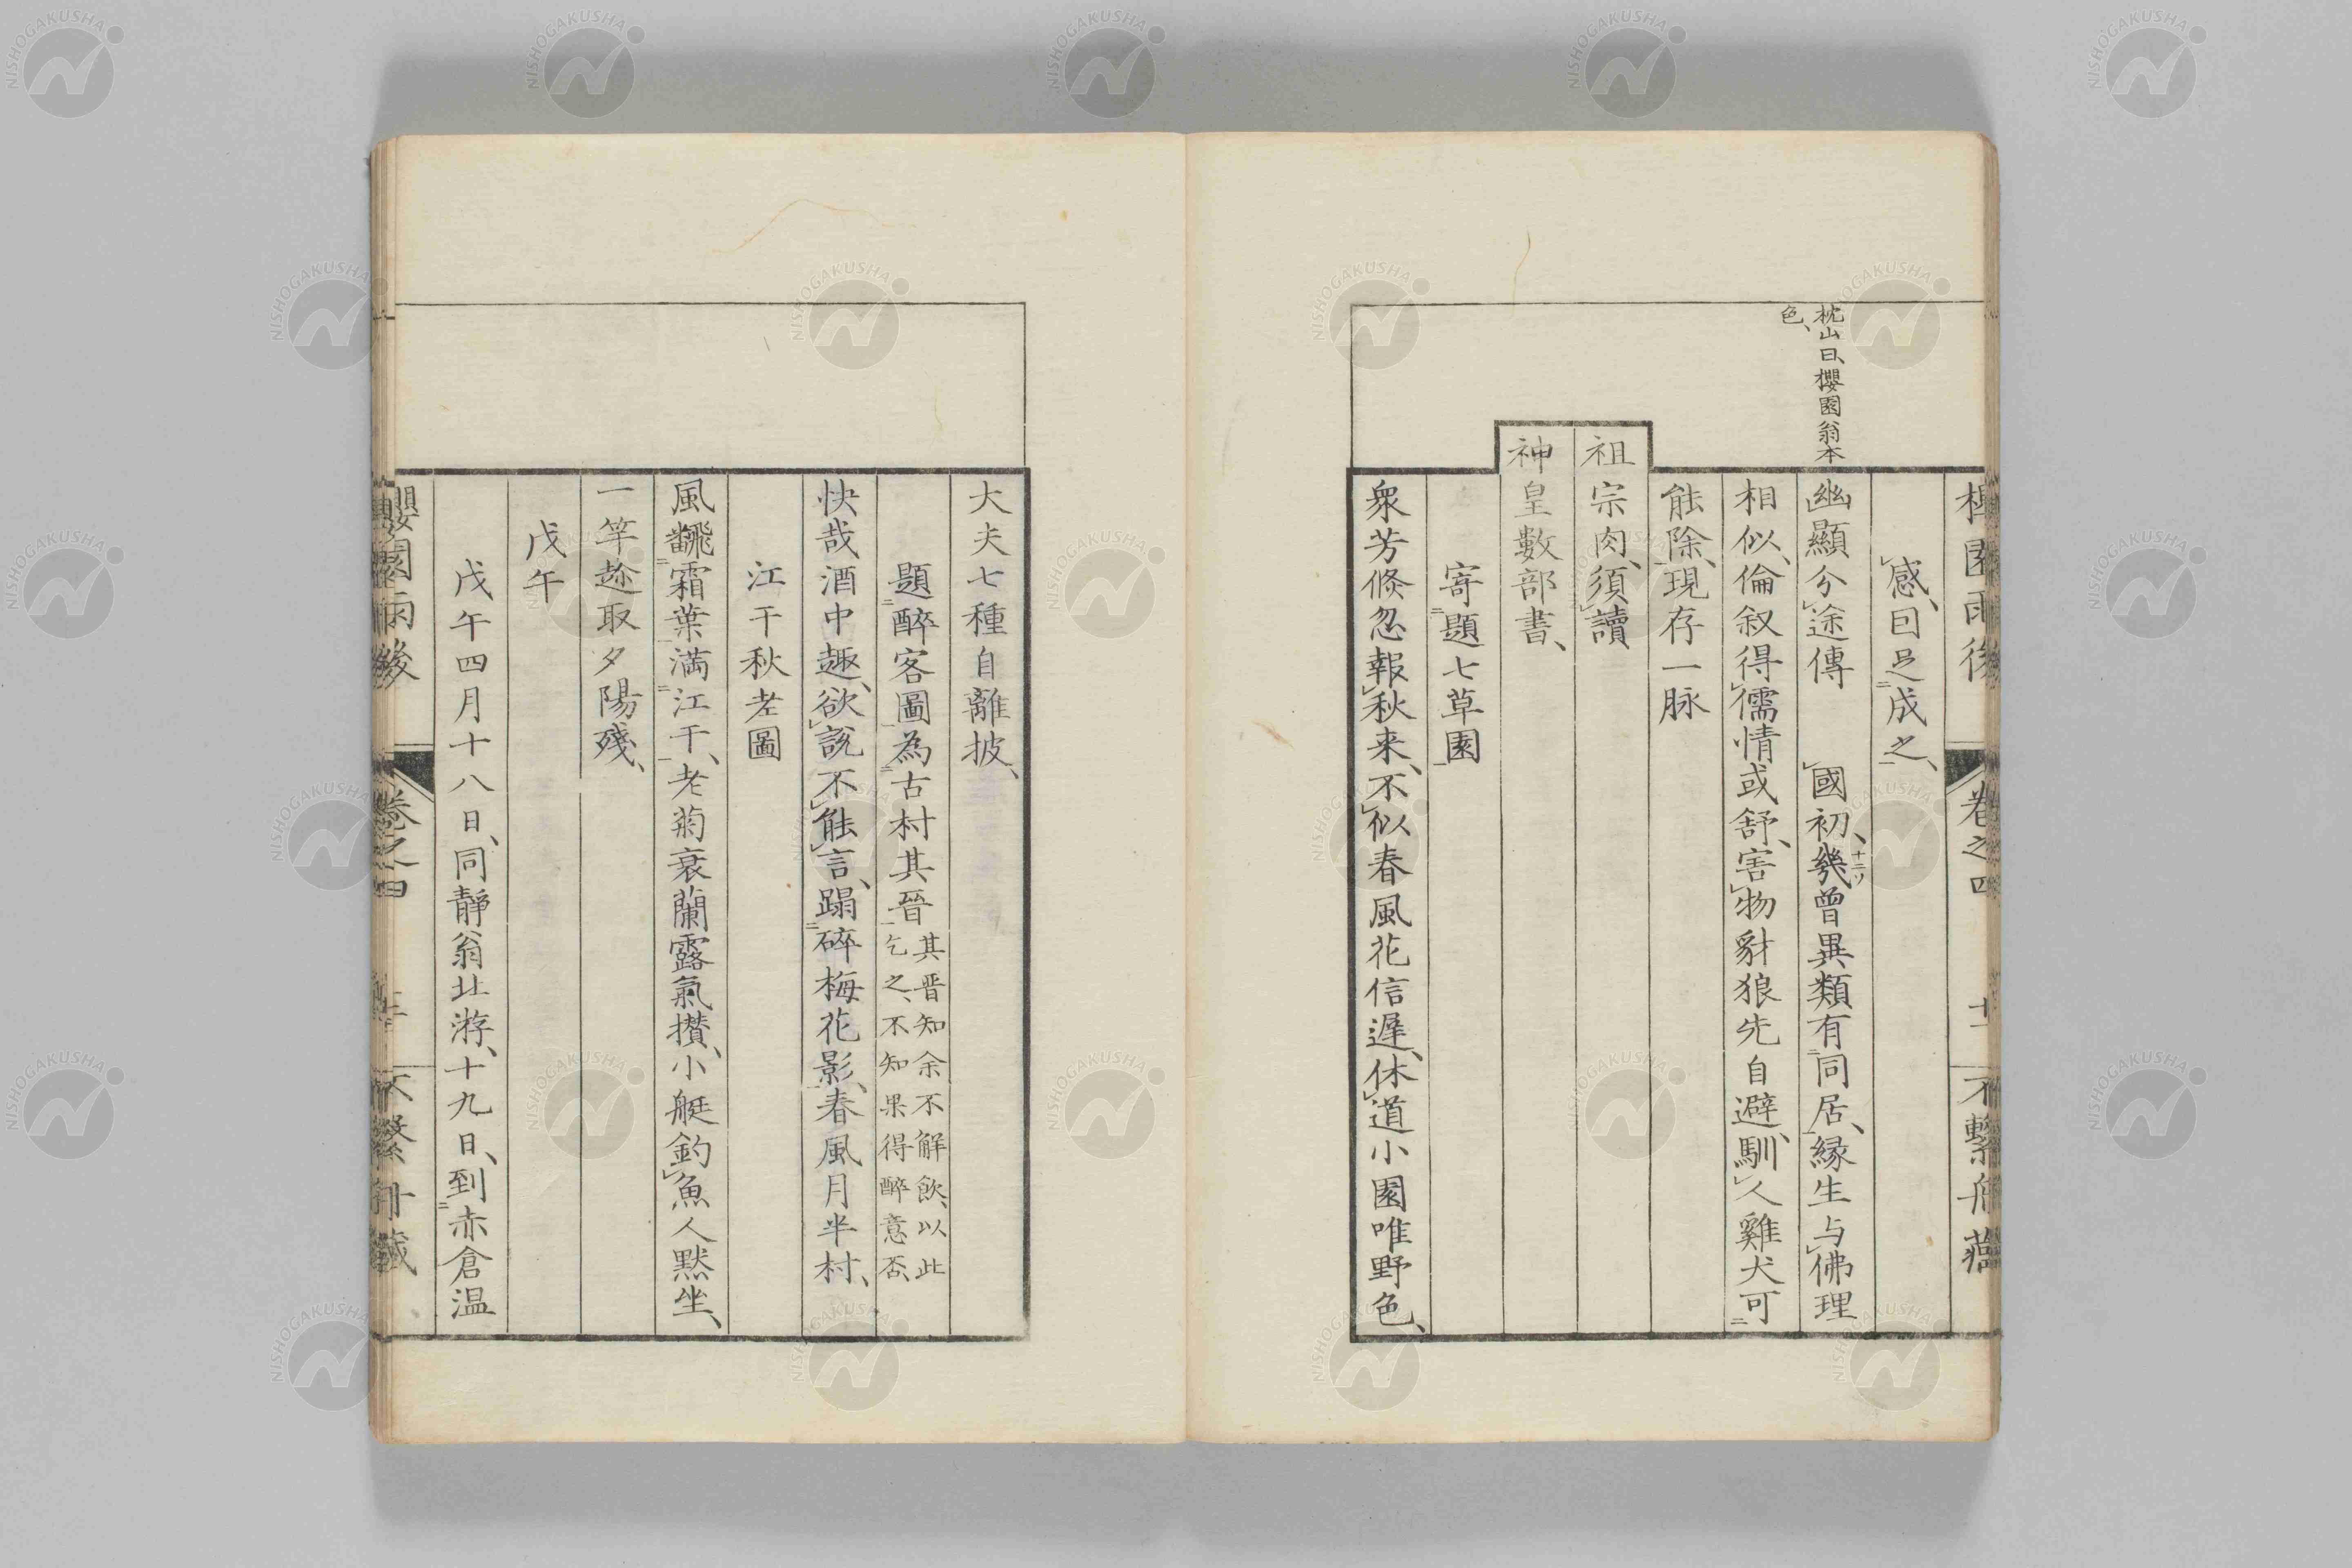 櫻園雨後 卷之四 十一 不繫舟藏
感、因足成之、
幽顯分途傳 國初、幾曾異類有同居、縁生与佛理
相似、倫叙得儒情或舒、害物豺狼先自避、馴人雞犬可
能除、現存一脉
祖宗肉、須讀
神皇數部書、
寄題七草園
衆芳倏忽報秋来、不似春風花信遲、休道小園唯野色、
枕山曰、櫻園翁本
色、
大夫七種自離披、
題醉客圖為古村其晉 其晋知余不解飲、以此
乞之、不知果得醉意否、
快哉酒中趣、欲說不能言、蹋碎梅花影、春風月半村、
江干秋老圖
風飜霜葉満江干、老菊衰蘭露氣攅、小艇釣魚人黙坐、
一竿趂取夕陽殘、
戊午
戊午四月十八日、同靜翁北游、十九日、到赤倉温
櫻園雨後 卷之四 不繫舟藏
NISHOGAKUSHA